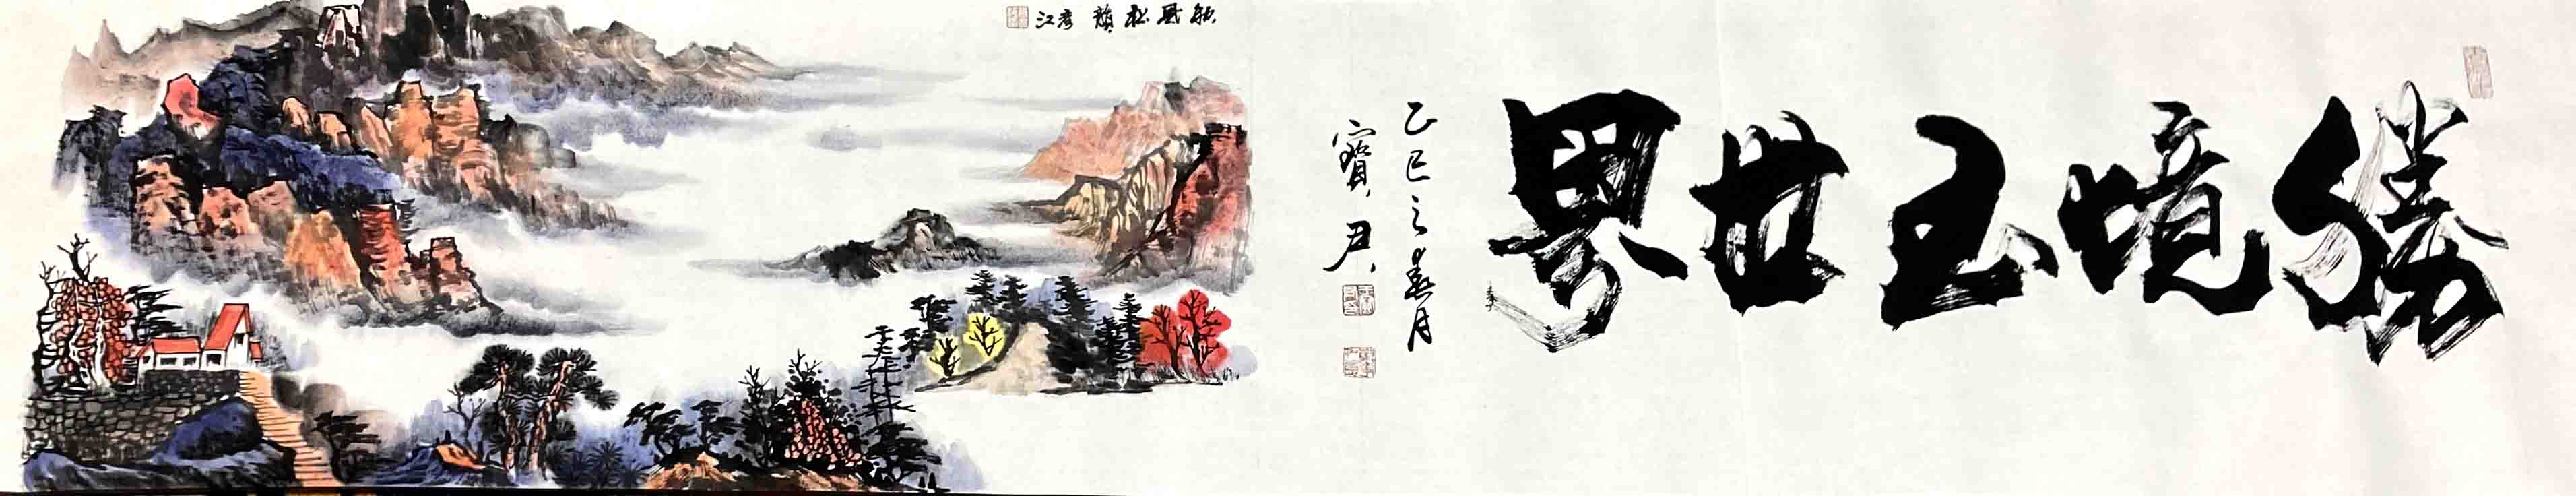 勝境玉世界
乙巳之春月
寶君
秋風松韻 彦江